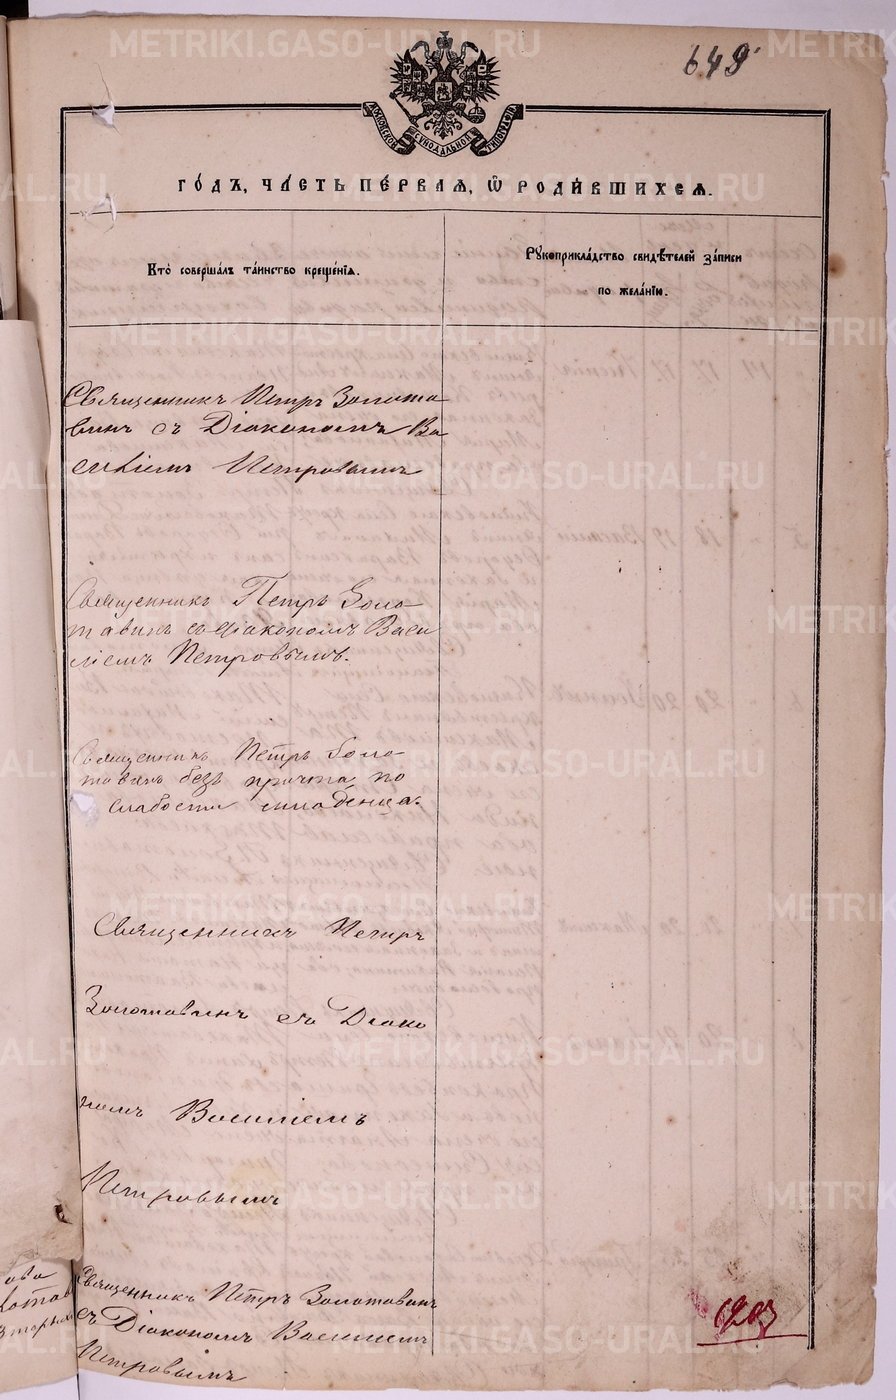 649
МОСКОВСКОЙ СѴНОДАЛЬНОЙ ТИПОГРАФІИ
ГО́ДЪ, ЧА́СТЬ ПЕ́РВАЯ, Ѽ РОДИ́ВШИХСЯ.
Кто̀ соверша́лъ та́инство креще́нїя.
Рꙋкоприкла́дство свидѣ́телей за́писи
по жела́нїю.
Священникъ Петръ Золота
винъ съ Діакономъ Ва
силіемъ Петровымъ
Священникъ Петръ Золо
тавинъ съ Діакономъ Васи
ліемъ Петровымъ.
Священникъ Петръ Золо
тавинъ безъ причта по
слабости младенца.
Священникъ Петръ
Золотавинъ съ Діако
номъ Василіемъ
Петровымъ
Священникъ Петръ Золотавинъ
съ Діакономъ Василіемъ
Петровымъ
METRIKI.GASO-URAL.RU